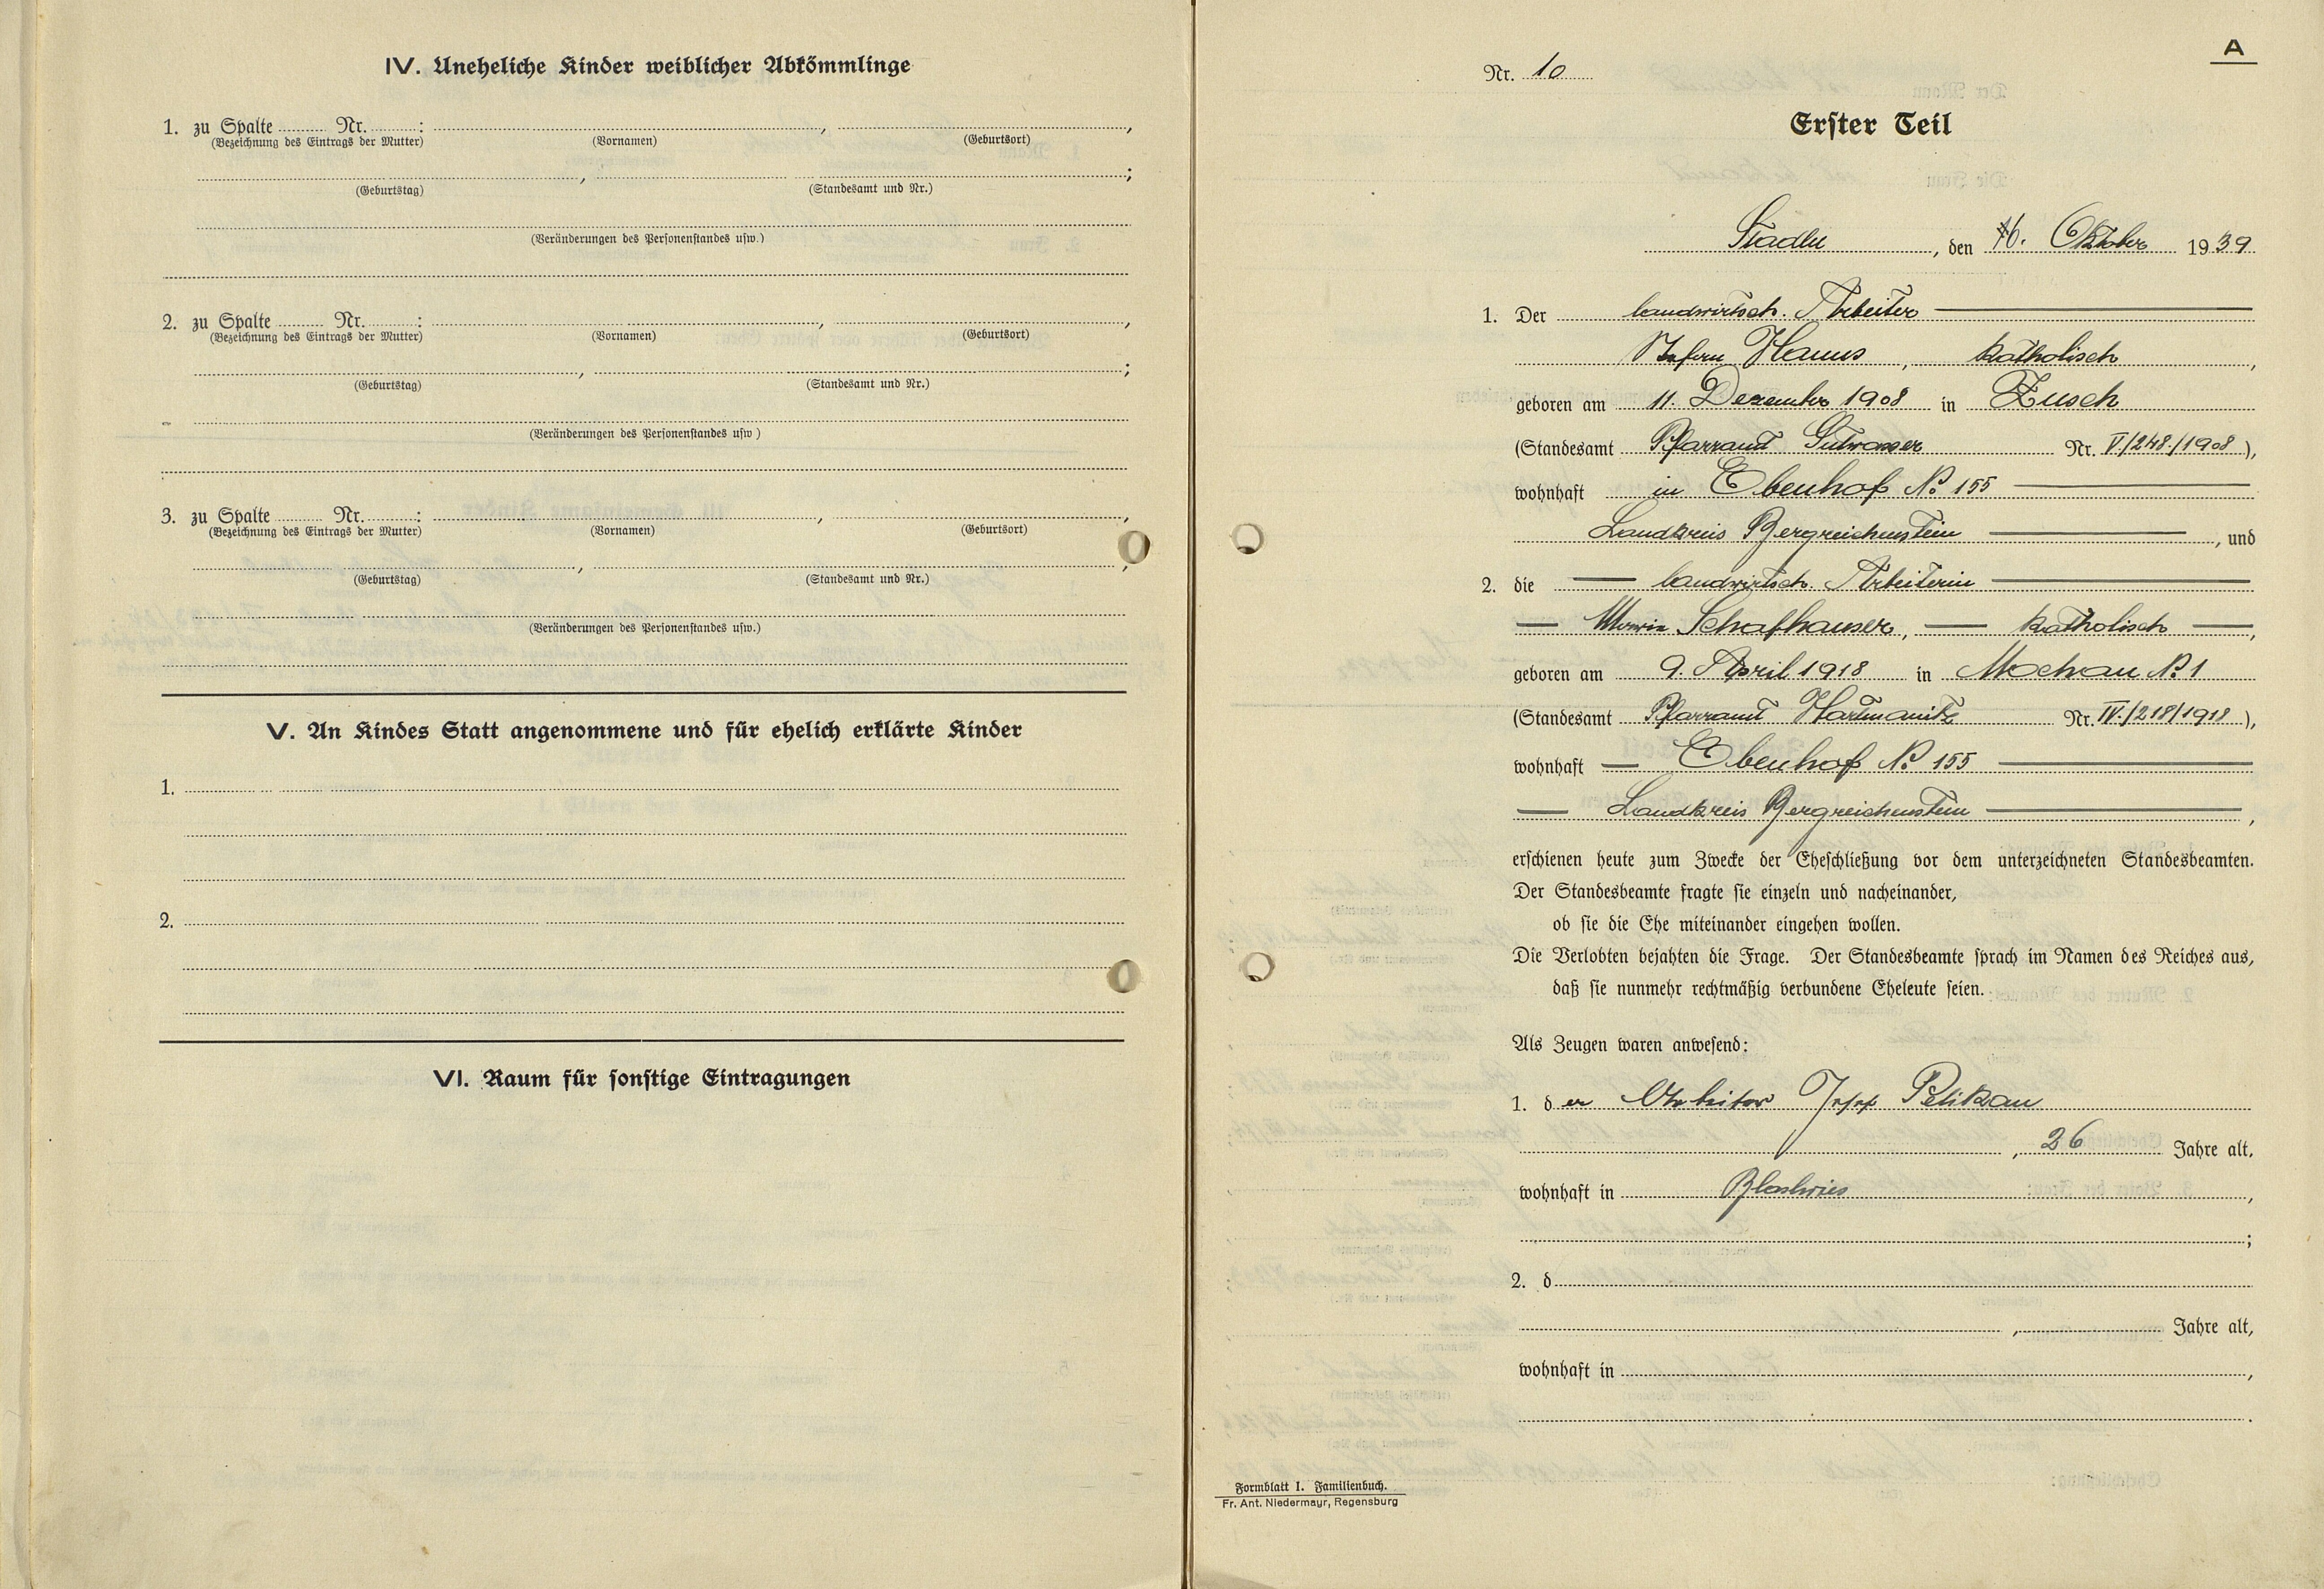 IV. Uneheliche Kinder weiblicher Abkömmlinge
1. zu Spalte ........ Nr. ........ : ........ , ........ ,
(Bezeichnung des Eintrags der Mutter) (Vornamen) (Geburtsort)
........ , ........ ;
(Geburtstag) (Standesamt und Nr.)
(Veränderungen des Personenstandes usw.)
2. zu Spalte ........ Nr. ........ : ........ , ........ ,
(Bezeichnung des Eintrags der Mutter) (Vornamen) (Geburtsort)
........ , ........ ;
(Geburtstag) (Standesamt und Nr.)
(Veränderungen des Personenstandes usw.)
3. zu Spalte ........ Nr. ........ : ........ , ........ ,
(Bezeichnung des Eintrags der Mutter) (Vornamen) (Geburtsort)
........ , ........ ;
(Geburtstag) (Standesamt und Nr.)
(Veränderungen des Personenstandes usw.)
V. An Kindes Statt angenommene und für ehelich erklärte Kinder
1.
2.
VI. Raum für sonstige Eintragungen
A
Nr. 10
Erster Teil
Stadln, den 16. Oktober 1939
1. Der landwirtsch. Arbeiter
Hanus, katholisch,
geboren am 11. Dezember 1908 in Zusch
(Standesamt Pfarramt Gutwasser Nr. V./248./1908),
wohnhaft in Ebenhof No 155
Landkreis Bergreichenstein, und
2. die landwirtsch. Arbeiterin
Maria Schafhauser, katholisch,
geboren am 9. April 1918 in Mochau No 1
(Standesamt Pfarramt Hartmanitz Nr. IV./218/1918),
wohnhaft Ebenhof No 155
Landkreis Bergreichenstein,
erschienen heute zum Zwecke der Eheschließung vor dem unterzeichneten Standesbeamten.
Der Standesbeamte fragte sie einzeln und nacheinander,
ob sie die Ehe miteinander eingehen wollen.
Die Verlobten bejahten die Frage. Der Standesbeamte sprach im Namen des Reiches aus,
daß sie nunmehr rechtmäßig verbundene Eheleute seien.
Als Zeugen waren anwesend:
1. der Arbeiter Josef Pelikan
, 26 Jahre alt,
wohnhaft in ,
;
2. d
, Jahre alt,
wohnhaft in ,
.
Formblatt I. Familienbuch.
Fr. Ant. Niedermayr, Regensburg